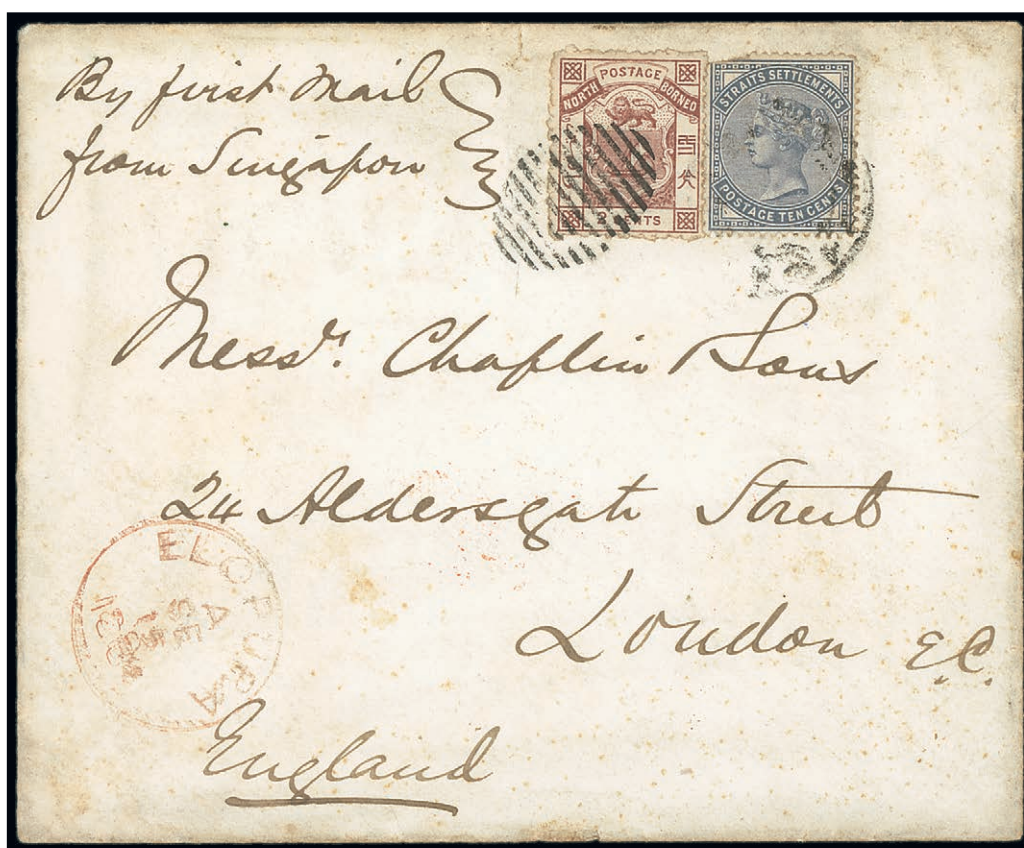 By first Mail
from Singapore
POSTAGE
NORTH BORNEO
CENTS
STRAITS SETTLEMENTS
POSTAGE TEN CENTS
Messrs. Chaplin Sons
24 Aldersgate Street
London E.C.
England
ELOPURA
A